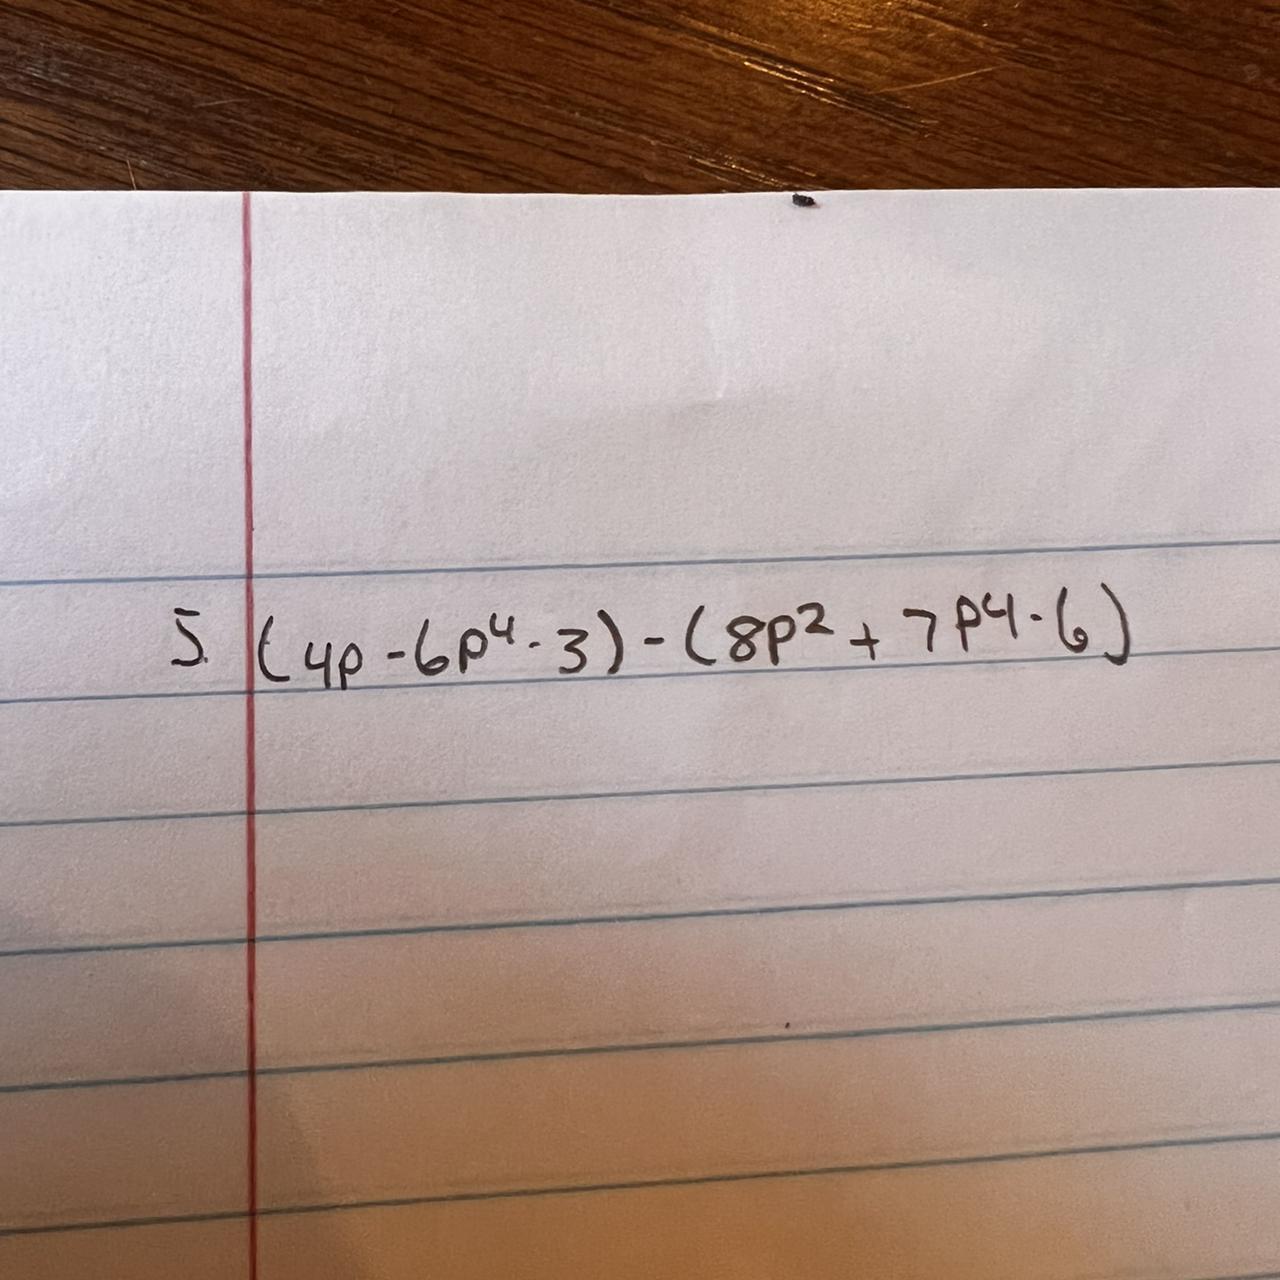 5. (4p - 6p⁴ - 3) - (8p² + 7p⁴ - 6)